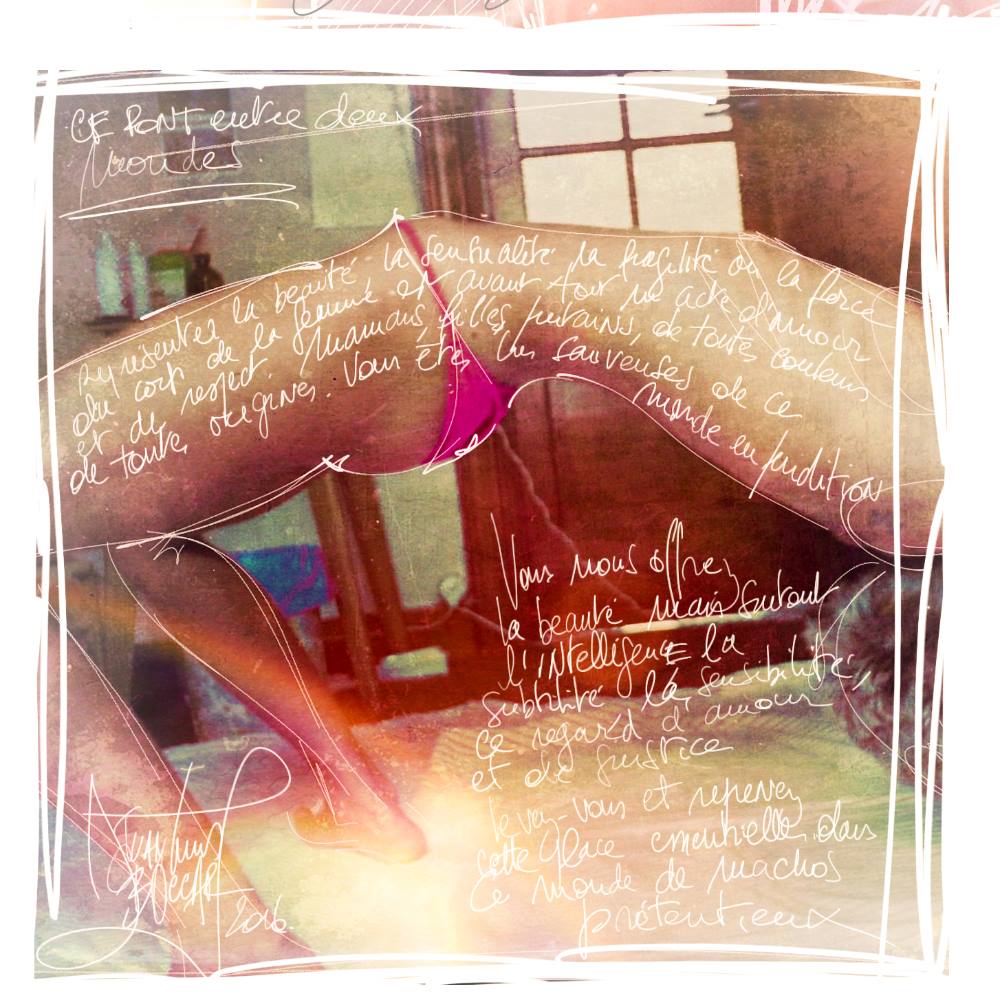 CE PONT entre deux
Mondes
représenter la beauté la sensualité la fragilité ou la force
du corps de la femme est avant tout un acte d'amour
et du respect. Mamans filles putains, de toutes couleurs
de toutes origines. Vous êtes les sauveuses de ce
monde en perdition
Vous nous offrez
la beauté mais surtout
l'iNtelligencE la
subtilité la sensibilité,
ce regard d'amour
et de justice
levez-vous et reprenez
cette place essentielle dans
ce monde de machos
prétentieux
2016.